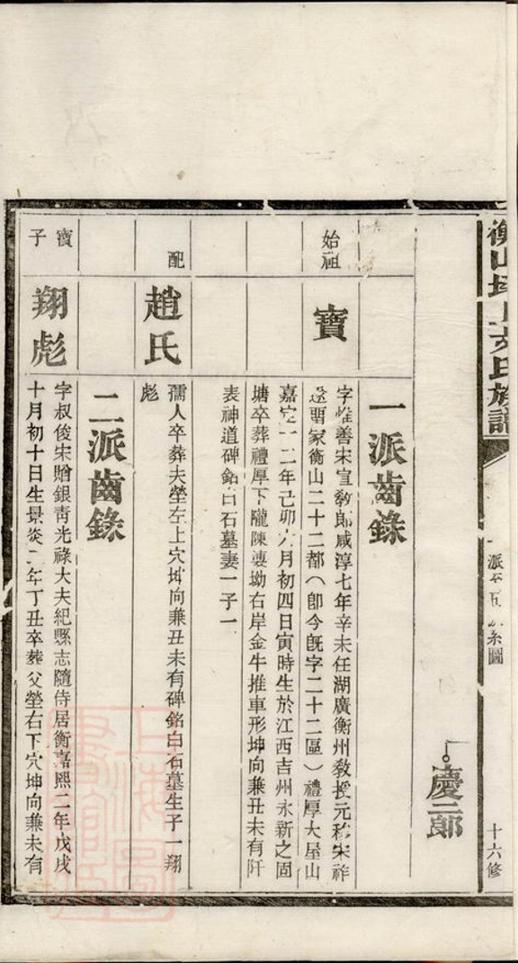 衡山
氏族譜
派
系圖
慶三郎
十六修
一派齒錄
始祖
寶
字惟善宋宣敎郎咸淳七年辛未任湖廣衡州敎授元移宋祚
遂
家衡山二十二都(卽今旣字二十二區)禮厚大屋山
嘉定十二年己卯六月初四日寅時生於江西吉州永新之固
塘卒葬禮厚下隴陳
坳右岸金牛推車形坤向兼丑未有阡
表神道碑銘白石墓妻一子一
配
趙氏
孺人卒葬夫塋左上穴坤向兼丑未有碑銘白石墓生子一翔
彪
二派齒錄
寶子
翔彪
字叔俊宋贈銀青光祿大夫紀縣志隨侍居衡嘉熙二年戊戌
十月初十日生景炎二年丁丑卒葬父塋右下穴坤向兼未有
上海圖書館藏